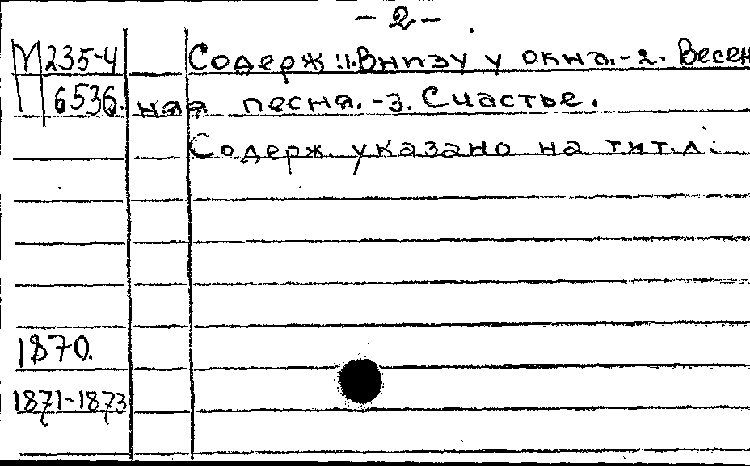 - 2 -
М 235-4 Содерж.: 1. Внизу у окна. - 2. Весен
6536. ная песня. - 3. Счастье.
Содерж. указано на тит. л.
1870.
1871-1873